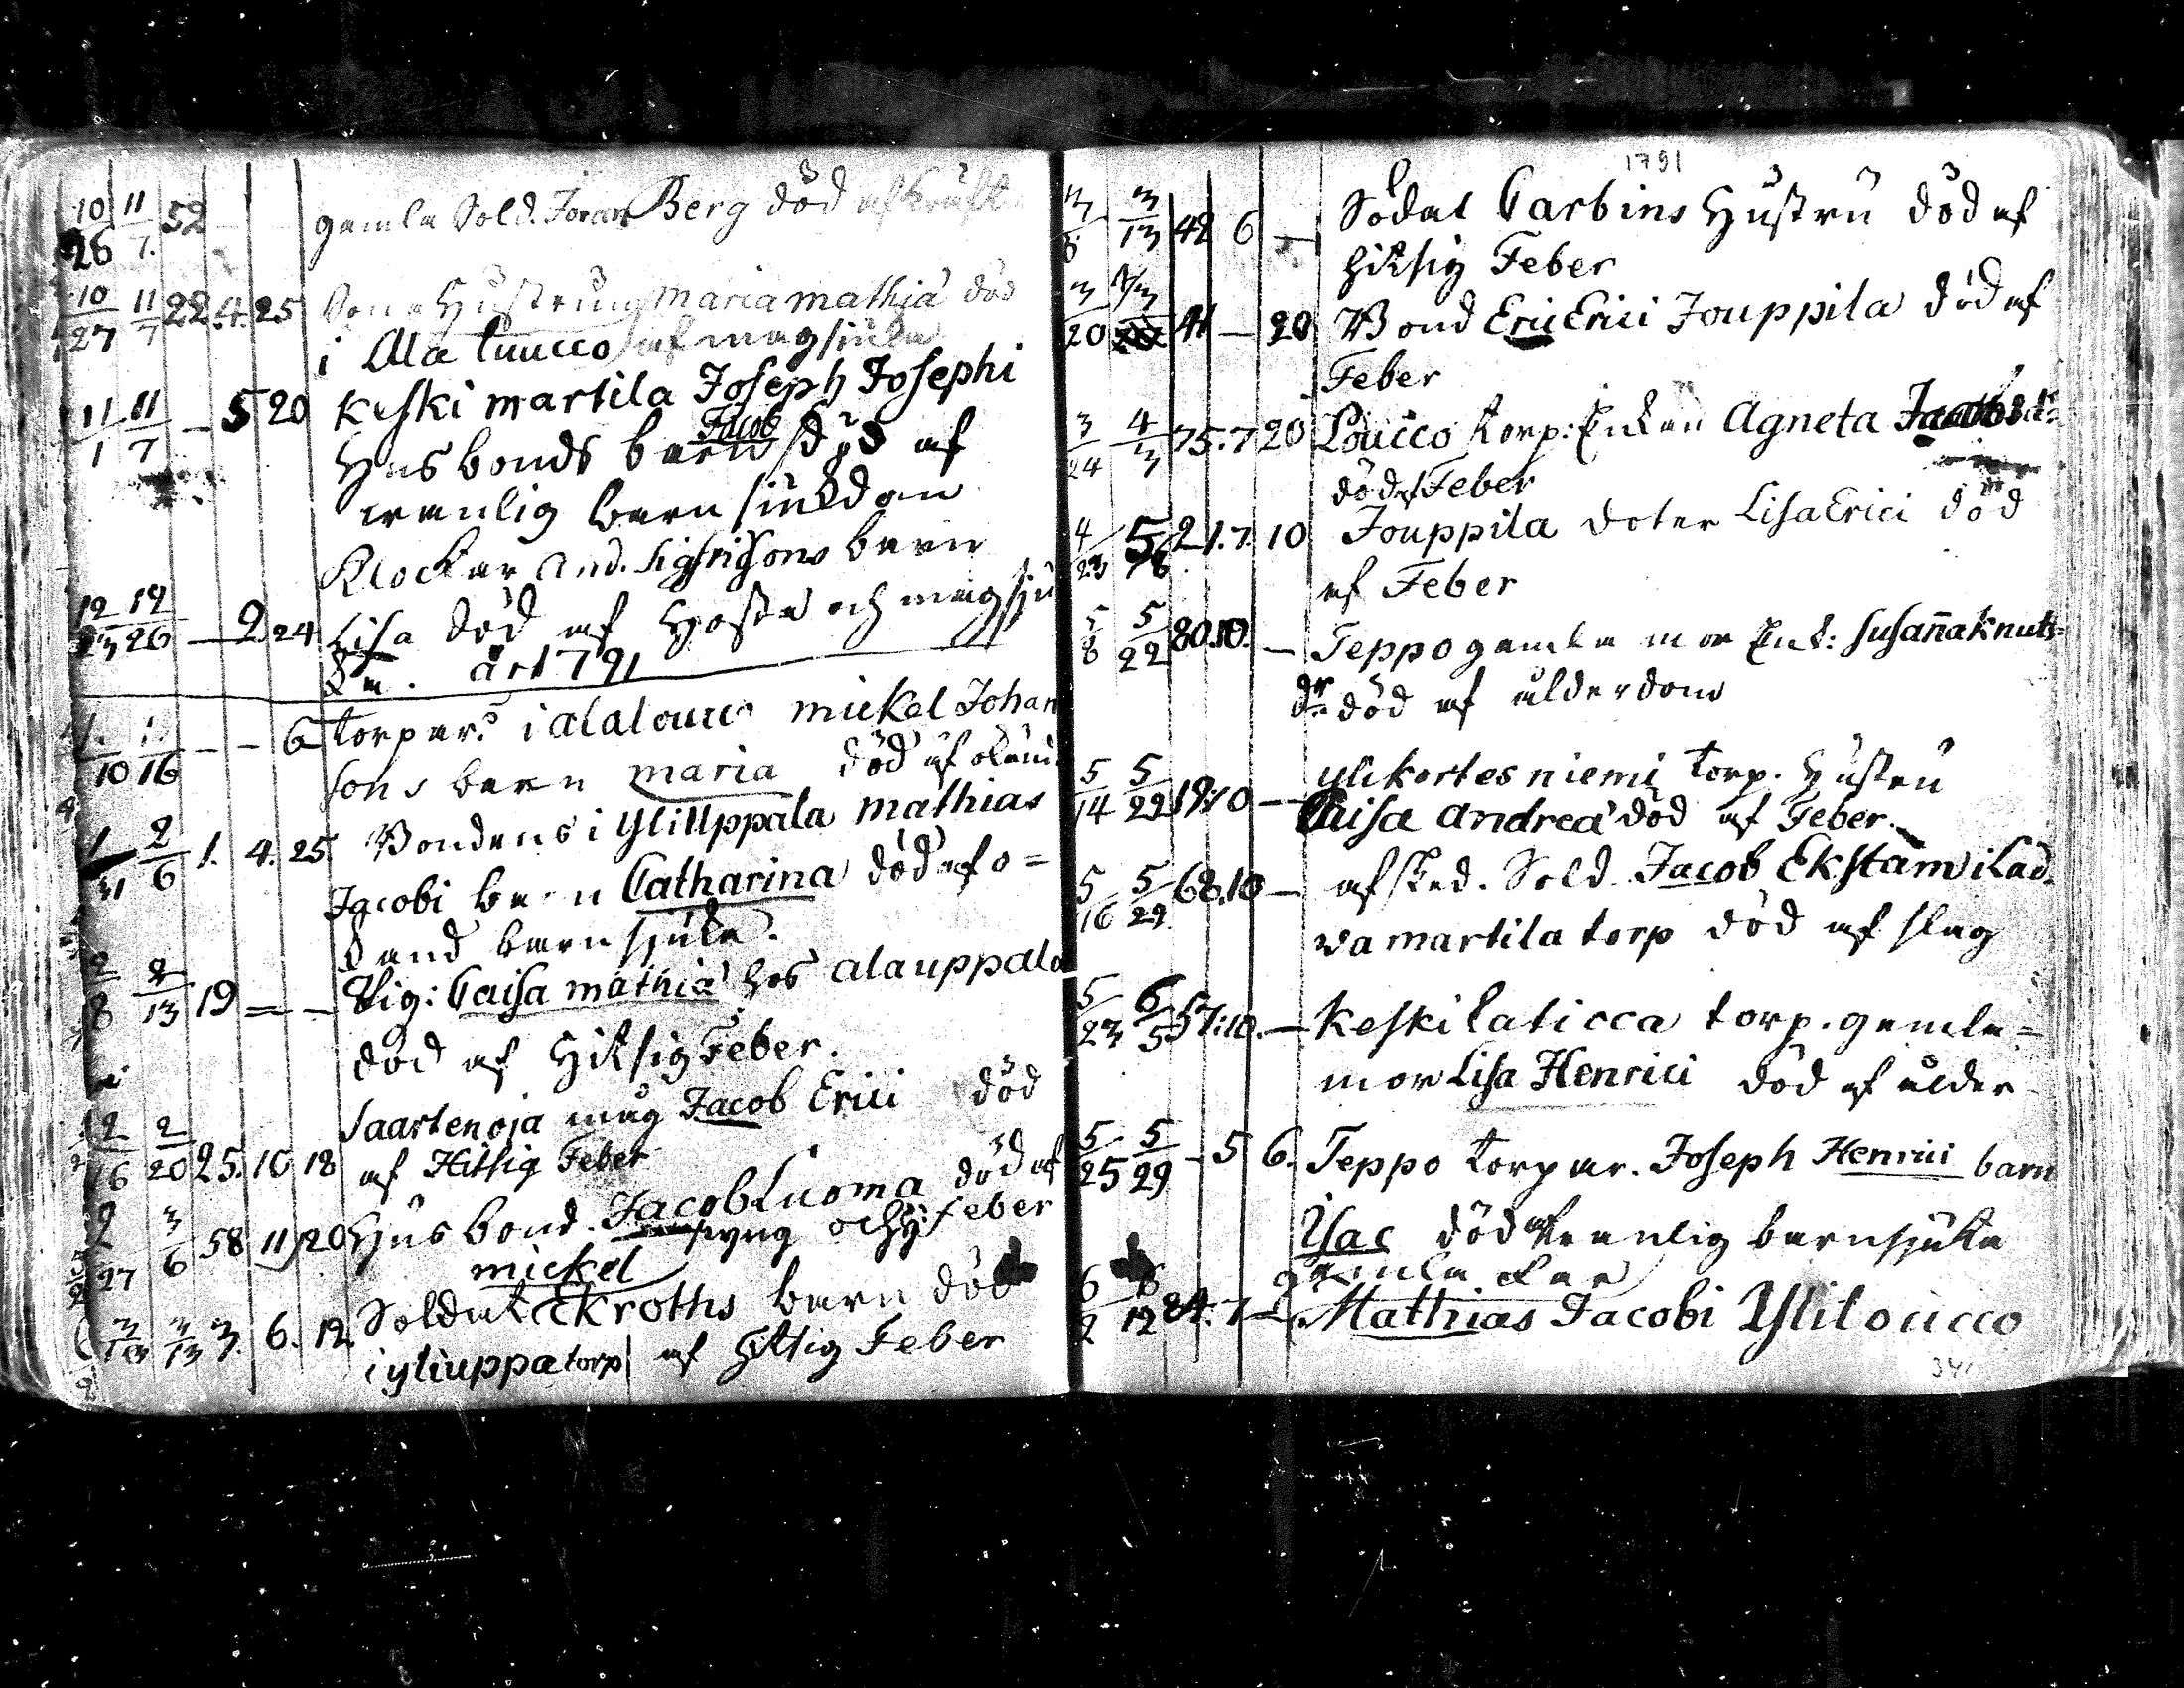 10/26 11/7. 52 gamla Sold. Joran Berg död af kräft
10/27 11/7 22.4.25 Sone Hustrung Maria Mathiae död
i Ala luucco af magsiuka
11/1 11/7 – 5 20 Keski martila Joseph Josephi
Husbonds barn Jacob död af
wanlig barnsiukdom
Klockar And. Sigfridsons barn
12/23 12/26 – 2 24 Lisa död af Hosta och magsju
ka. år 1791
1/10 1/16 – – 6 torpar. i alaloucco mickel Johan
sons barn maria död af okänd
1/31 2/6 1. 4. 25 Bondens i YliUppala mathias
Jacobi barn Catharina död af o=
känd barnsjuka.
2/8 2/13 19 = – Pig: Caisa mathiae hos alauppala
död af Hitsig Feber.
saartenoja mug Jacob Erici död
2/16 2/20 25. 10 18 af Hitsig Feber
2/27 3/6 58 11 20 Husbond. Jacob Luoma död af
styng och h: feber
mickel
Soldat Ekroths barn död
3/10 3/13 3. 6. 12 i yliuppa torp af Hitsig Feber
1791
3/8 3/13 42 6 – Sodat Carbins Hustru död af
hitsig Feber
3/20 41 – 20 Bond Eric Erici Jouppila död af
Feber
3/24 4/3 75. 7 20 Loucco torp: Enkan Agneta Jacobsd:
död af Feber
4/23 5/8 21. 7. 10 Jouppila doter Lisa Erici död
af Feber
5/8 5/22 80.10. – Teppo gamla mor Enk: Susanna Knuts=
dr död af ålderdom
5/14 5/29 19:10 – ylikortesniemi torp. Hustru
Caisa Andreae död af Feber.
5/16 5/29 68.10 – afsked. Sold. Jacob Ekstam i Lad.
va martila torp död af slag
5/23 6/5 57:10. – Keskilaticca torp. gamla=
mor Lisa Henrici död af ålder
5/25 5/29 – 5 6. Teppo torpar. Joseph Henrici barn
Isac död af wanlig barnsjuka
gamla far
6/2 6/12 84. 7 – Mathias Jacobi Yliloucco
341